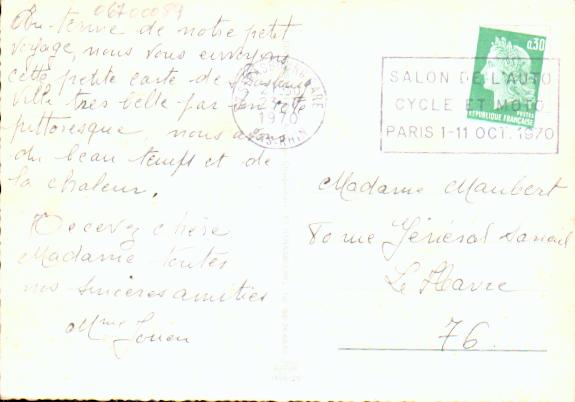 06700089
Au terme de notre petit
voyage, nous vous envoyons
cette petite carte de Strasbourg
ville très belle par son côté
pittoresque, nous avons
du beau temps et de
la chaleur.
Recevez chère
Madame toutes
nos sincères amitiés
Mme
GARE
1970
BAS-RHIN
SALON DE L'AUTO
CYCLE ET MOTO
PARIS 1-11 OCT. 1970
0,30
POSTES
REPUBLIQUE FRANÇAISE
Madame Maubert
80 rue Général Sarrail
Le Havre
76.